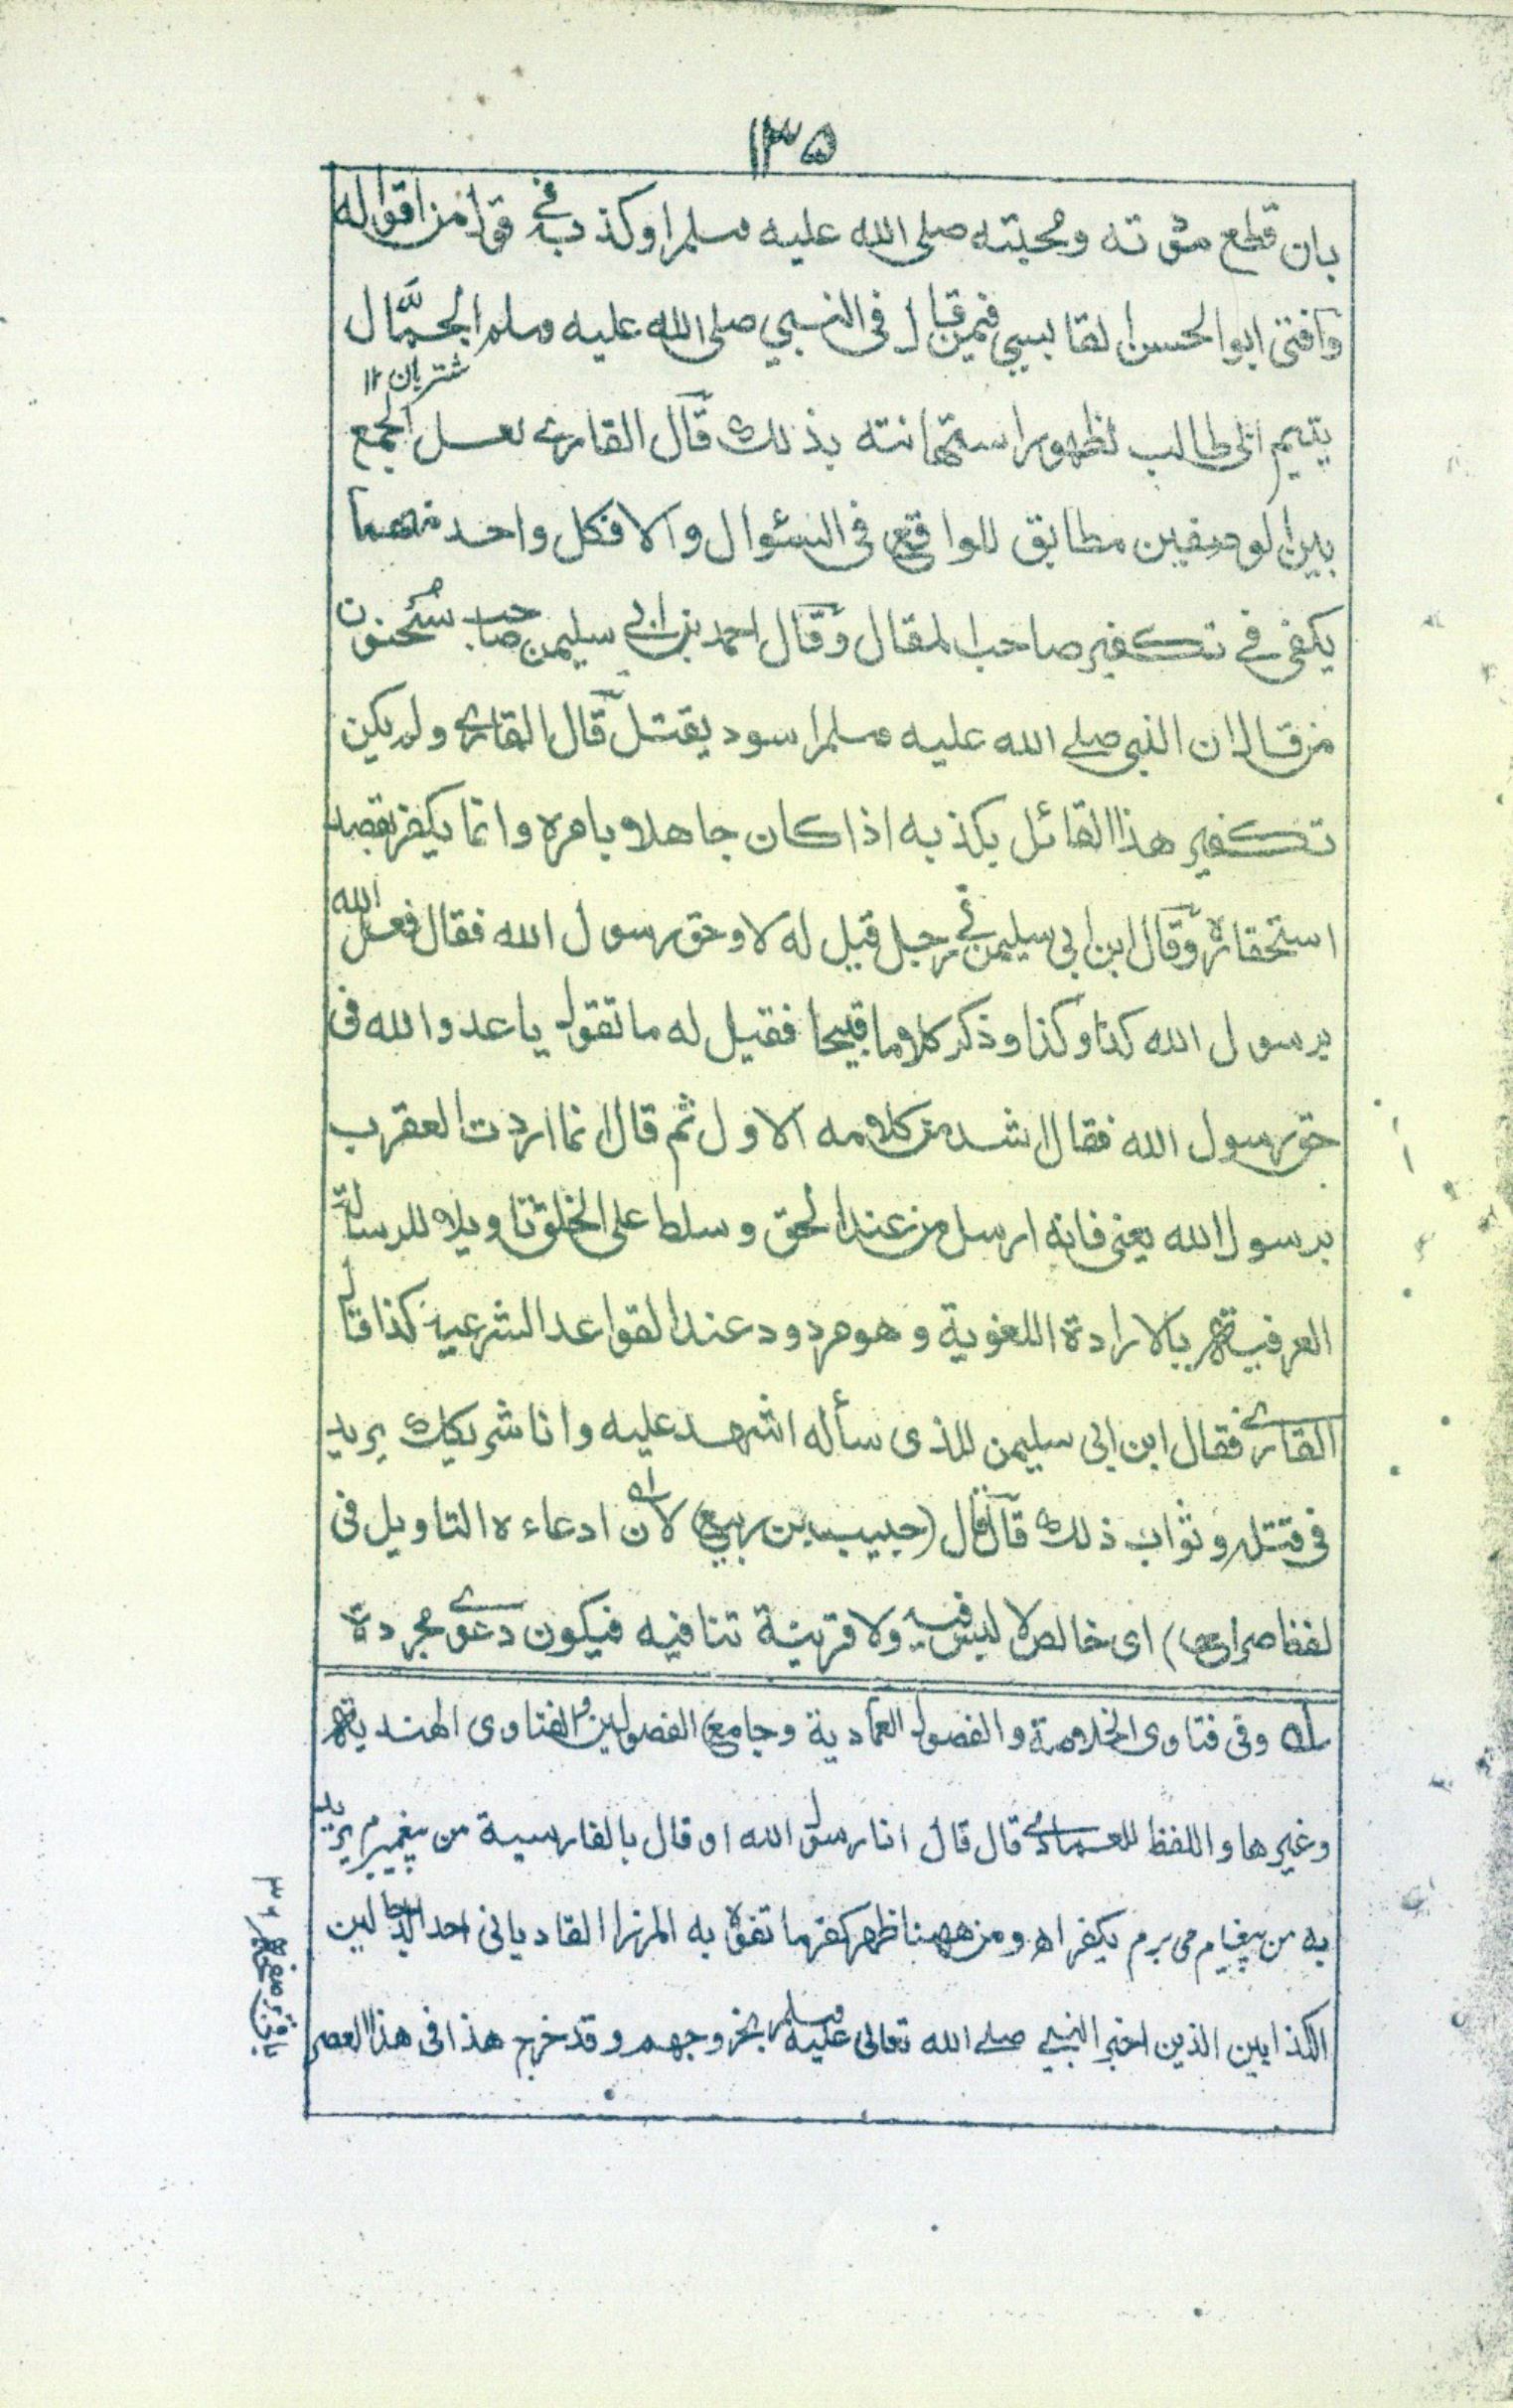 ۱۳۵
بان قطع مودته ومحبته صلى الله عليه وسلم او كذب في قول من اقواله
وافتى ابو الحسن القابسي فيمن قال في النبي صلى الله عليه وسلم الجمَّال
شتربان ۱۲
يتيم ابى طالب لظهور استهانته بذلك قال القارے لعل الجمع
بين الوصفين مطابق للواقع فى السئوال والا فكل واحد منهما
يكفى فے تكفير صاحب المقال وقال احمد بن ابي سليمن صاحب سُحنون
من قال ان النبى صلے الله عليه وسلم اسود يقتل قال القارے ولم يكن
تكفير هذا القائل بكذبه اذا كان جاهلا بامره وانما يكفر بقصد
استحقاره وقال ابن ابى سليمن فے رجل قيل له لا وحق رسول الله فقال فعل الله
برسول الله كذا وكذا وذكر كلاما قبيحا فقيل له ما تقول يا عدو الله فى
حق رسول الله فقال اشد من كلامه الاول ثم قال انما اردت العقرب
برسول الله يعنى فانه ارسل من عند الحق وسلط على الخلق تاويلا للرسالة
العرفية بالارادة اللغوية وهو مردود عند القواعد الشرعية كذا قال
القارے فقال ابن ابى سليمن للذى سأله اشهد عليه وانا شريكك يريد
فى قتله وثواب ذلك قال قال (حبيب بن ربيع) لان ادعاءه التاويل فى
لفظ صراح) اى خالص لا لبس فيه ولا قرينة تنافيه فيكون دعوے مجردة
له وفى فتاوى الخلاصة والفصول العمادية وجامع الفصولين والفتاوى الهندية
وغيرها واللفظ للعمادے قال قال انا رسول الله او قال بالفارسية من پيغمبرم يريد
به من پيغام مى برم يكفر اھ ومن ههنا ظهر كفر ما تفوه به المرزا القاديانى احد الدجالين
الكذابين الذين اخبر النبي صلے الله تعالى عليه وسلم بخروجهم وقد خرج هذا فى هذا العصر